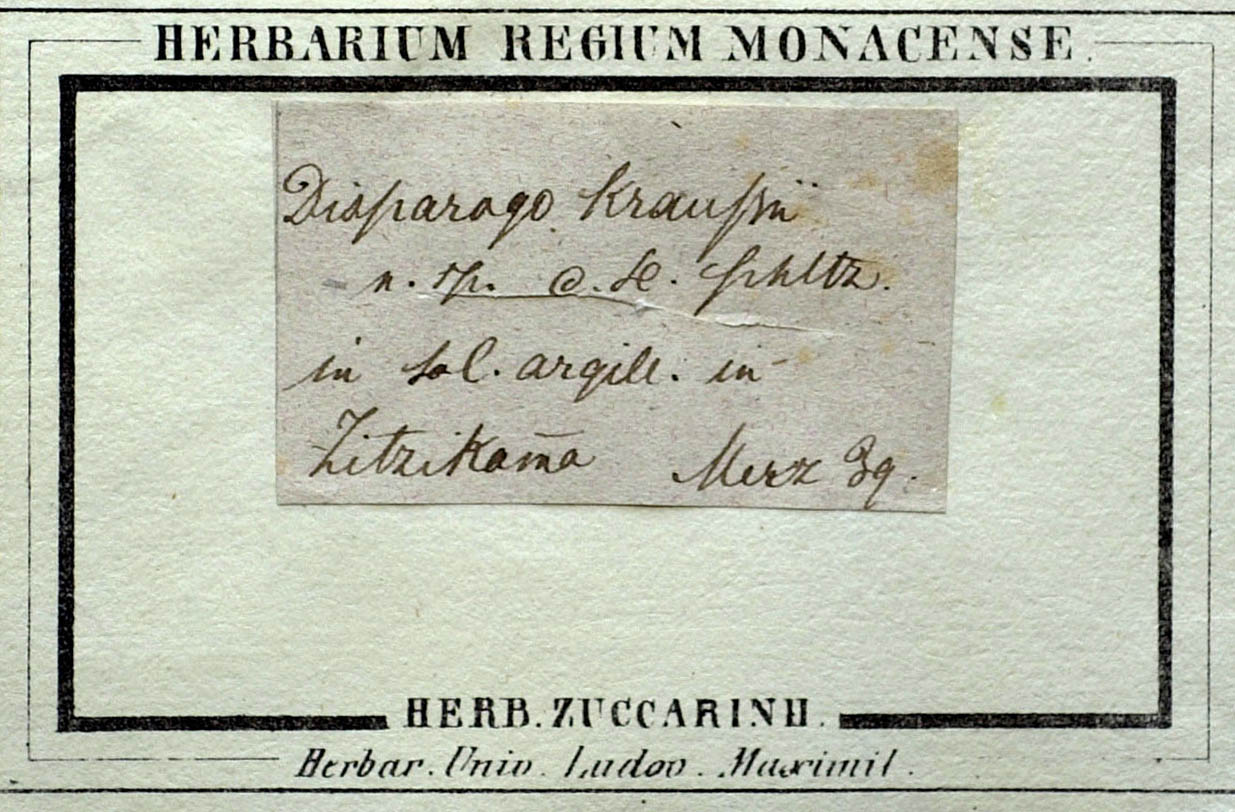 HERBARIUM REGIUM MONACENSE.
Disparago Kraußii
n. sp. C. H. Schltz.
in sol. argill. in
Zitzikama Merz 39.
HERB. ZUCCARINII.
Herbar. Univ. Ludov. Maximil.